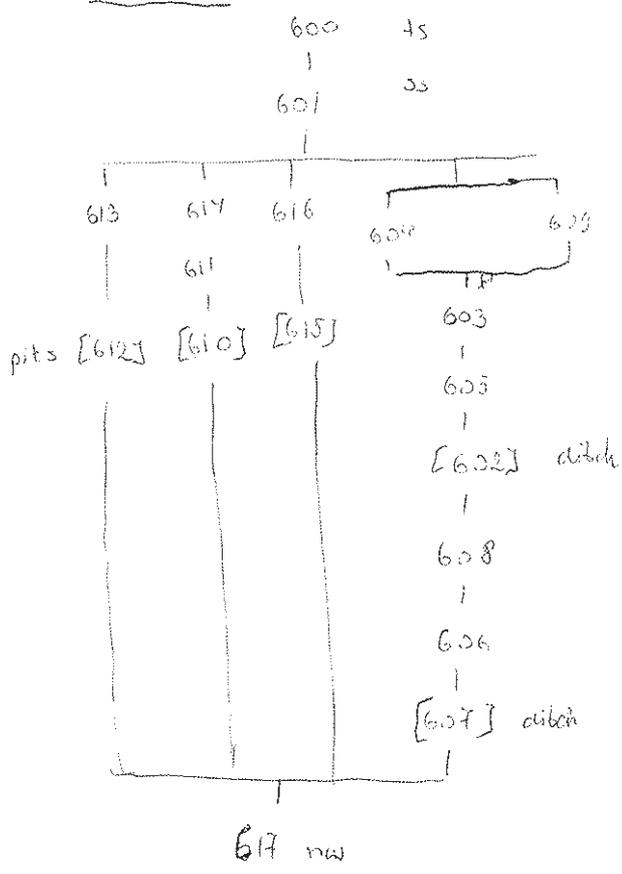 600 ts
601 ss
613 614 616 604 609
611
603
pits [612] [610] [615]
605
[602] ditch
608
606
[607] ditch
617 nat